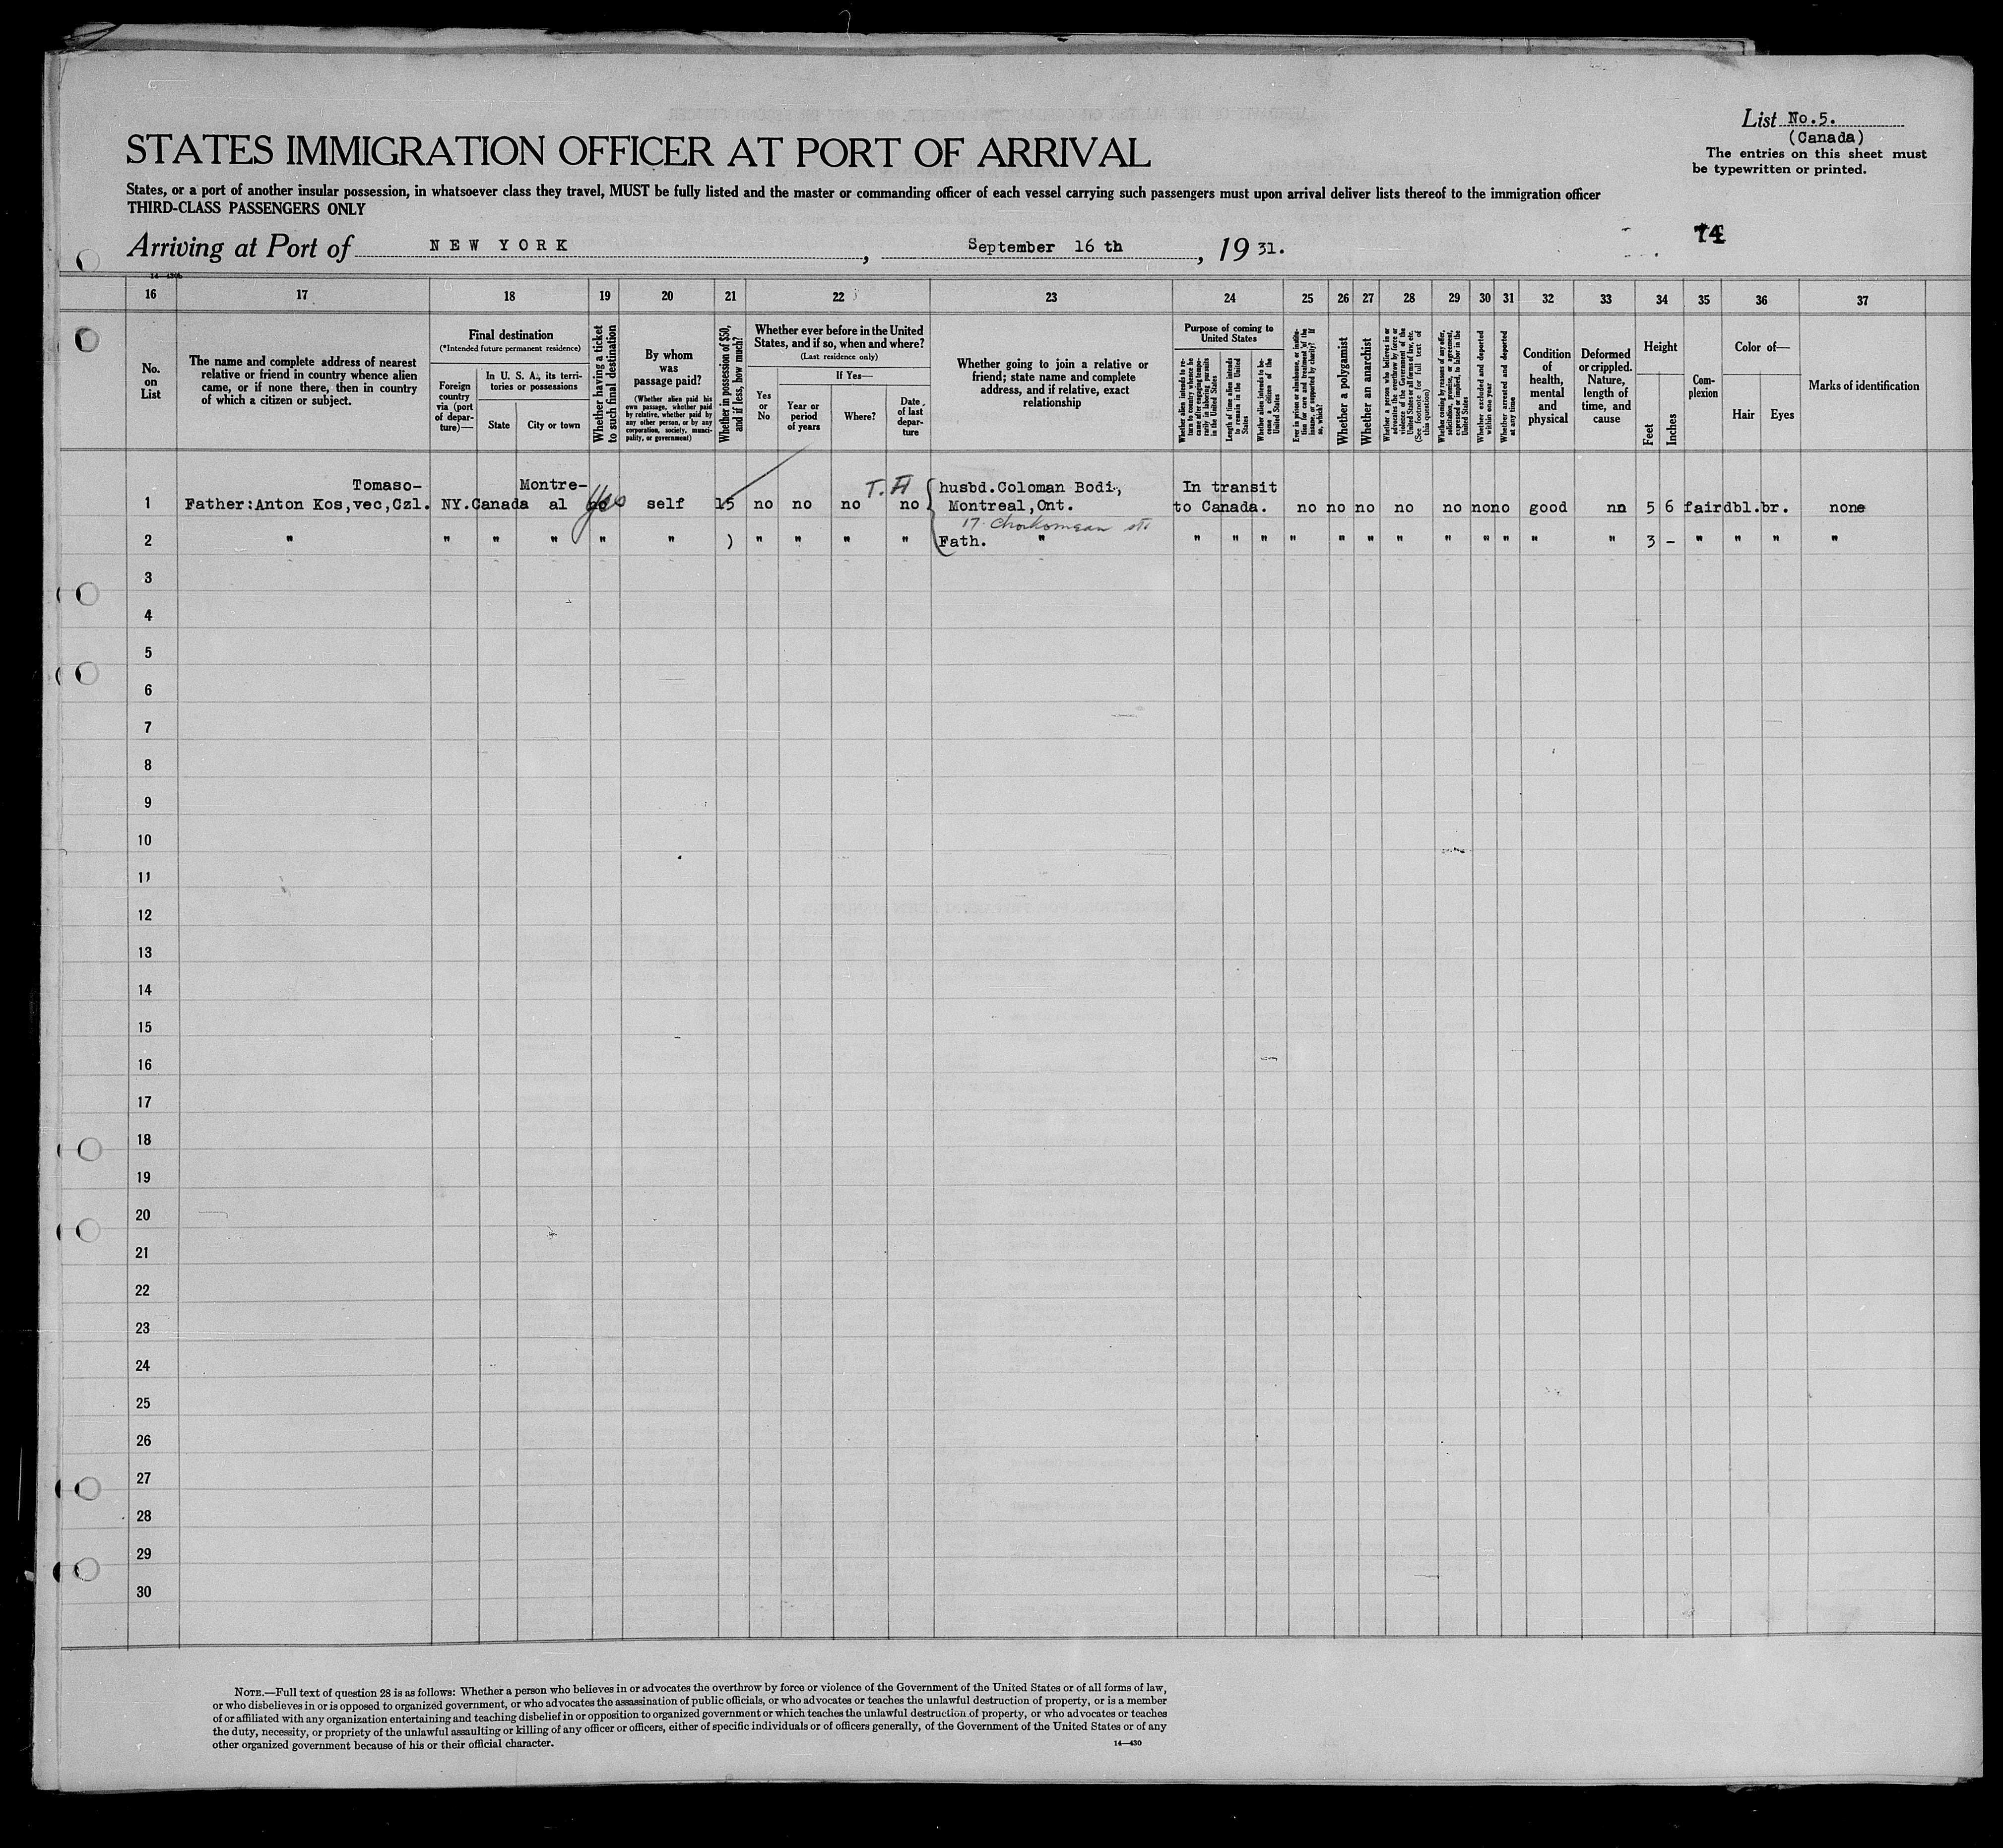 List No.5.
(Canada)
The entries on this sheet must
be typewritten or printed.
STATES IMMIGRATION OFFICER AT PORT OF ARRIVAL
States, or a port of another insular possession, in whatsoever class they travel, MUST be fully listed and the master or commanding officer of each vessel carrying such passengers must upon arrival deliver lists thereof to the immigration officer
THIRD-CLASS PASSENGERS ONLY
74
Arriving at Port of NEW YORK, September 16 th, 19 31.
14—430b
16 17 18 19 20 21 22 23 24 25 26 27 28 29 30 31 32 33 34 35 36 37
No.
on
List
The name and complete address of nearest
relative or friend in country whence alien
came, or if none there, then in country
of which a citizen or subject.
Final destination
(*Intended future permanent residence)
Foreign
country
via (port
of depar-
ture)—
In U. S. A., its terri-
tories or possessions
State
City or town
Whether having a ticket
to such final destination
By whom
was
passage paid?
(Whether alien paid his
own passage, whether paid
by relative, whether paid by
any other person, or by any
corporation, society, munici-
pality, or government)
Whether in possession of $50,
and if less, how much?
Whether ever before in the United
States, and if so, when and where?
(Last residence only)
Yes
or
No
If Yes—
Year or
period
of years
Where?
Date
of last
depar-
ture
Whether going to join a relative or
friend; state name and complete
address, and if relative, exact
relationship
Purpose of coming to
United States
Whether alien intends to re-
turn to country whence he
came after engaging tempo-
rarily in laboring pursuits
in the United States
Length of time alien intends
to remain in the United
States
Whether alien intends to be-
come a citizen of the
United States
Ever in prison or almshouse, or institu-
tion for care and treatment of the
insane, or supported by charity? If
so, which?
Whether a polygamist
Whether an anarchist
Whether a person who believes in or
advocates the overthrow by force or
violence of the Government of the
United States or all forms of law, etc.
(See footnote for full text of
this question)
Whether coming by reasons of any offer,
solicitation, promise, or agreement,
expressed or implied, to labor in the
United States
Whether excluded and deported
within one year
Whether arrested and deported
at any time
Condition
of
health,
mental
and
physical
Deformed
or crippled.
Nature,
length of
time, and
cause
Height
Feet
Inches
Com-
plexion
Color of—
Hair
Eyes
Marks of identification
Tomaso- Montre- T. H husbd.Coloman Bodi, In transit
1 Father:Anton Kos,vec,Czl. NY.Canada al Yes self 15 no no no no Montreal,Ont. to Canada. no no no no no no no good nn 5 6 fair dbl.br. none
17.
2 " " " " " " ) " " " " Fath. " " " " " " " " " " " " " 3 - " " " "
3
4
5
6
7
8
9
10
11
12
13
14
15
16
17
18
19
20
21
22
23
24
25
26
27
28
29
30
NOTE.—Full text of question 28 is as follows: Whether a person who believes in or advocates the overthrow by force or violence of the Government of the United States or of all forms of law,
or who disbelieves in or is opposed to organized government, or who advocates the assassination of public officials, or who advocates or teaches the unlawful destruction of property, or is a member
of or affiliated with any organization entertaining and teaching disbelief in or opposition to organized government or which teaches the unlawful destruction of property, or who advocates or teaches
the duty, necessity, or propriety of the unlawful assaulting or killing of any officer or officers, either of specific individuals or of officers generally, of the Government of the United States or of any
other organized government because of his or their official character.
14—430